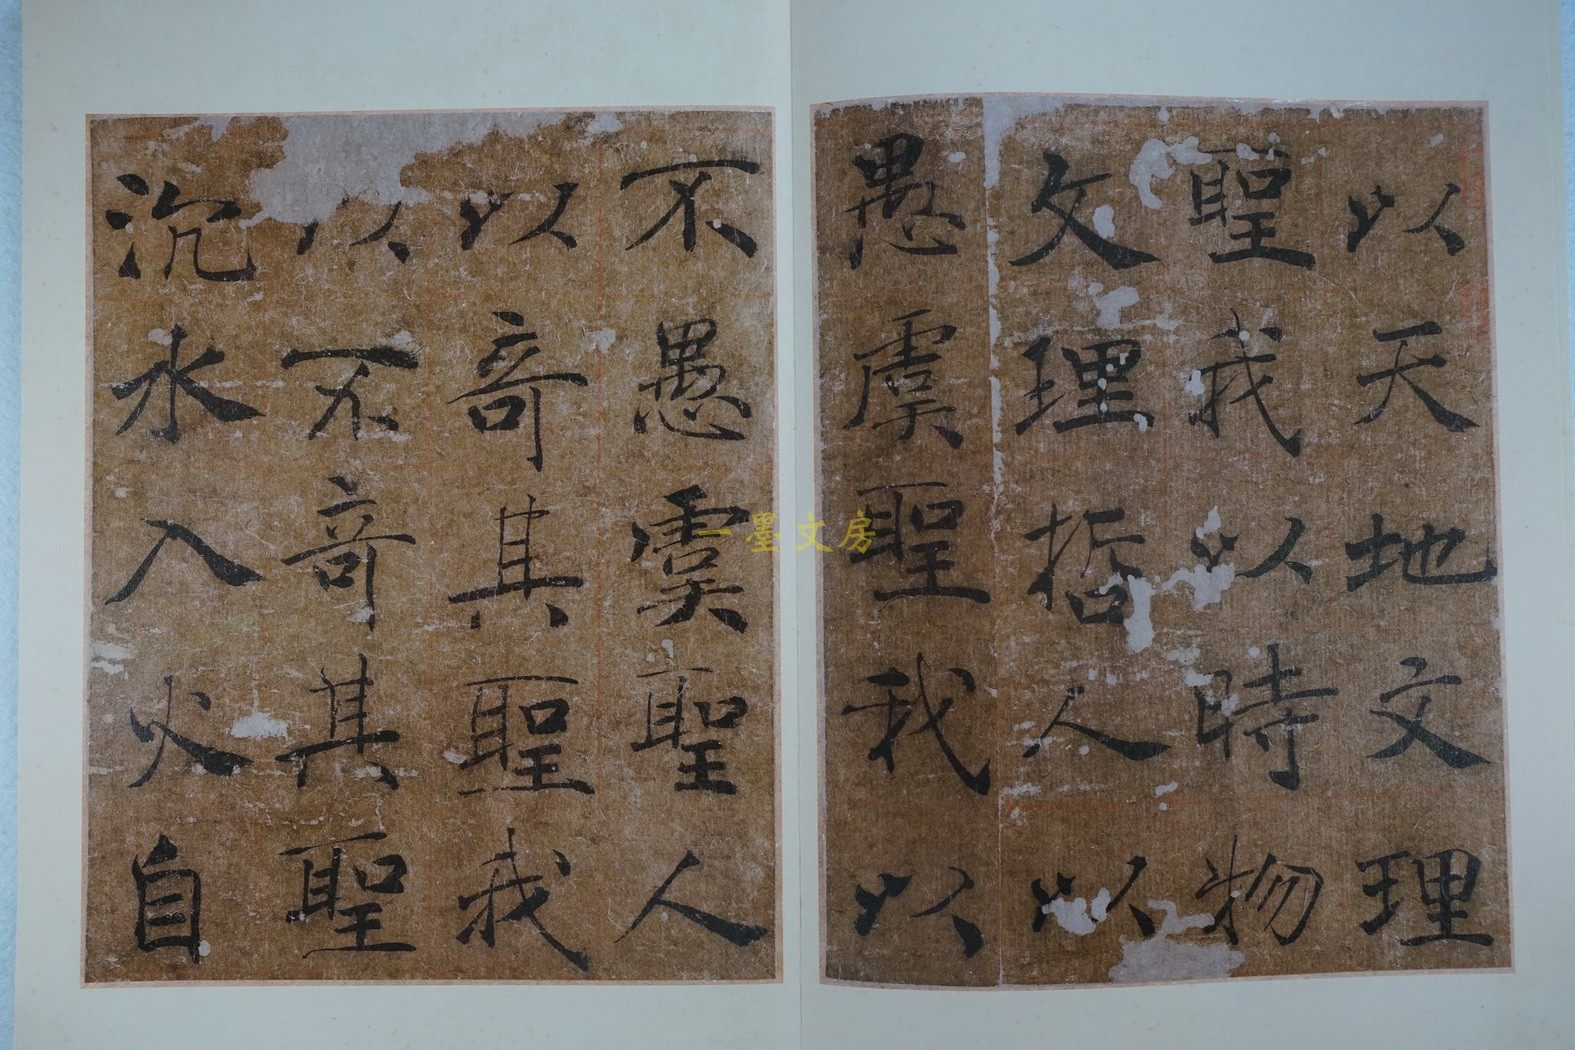 以天地文理
聖我以時物
文理哲人以
愚虞聖我以
不愚虞聖人
以奇其聖我
以不奇其聖
沉水入火自
一墨文房